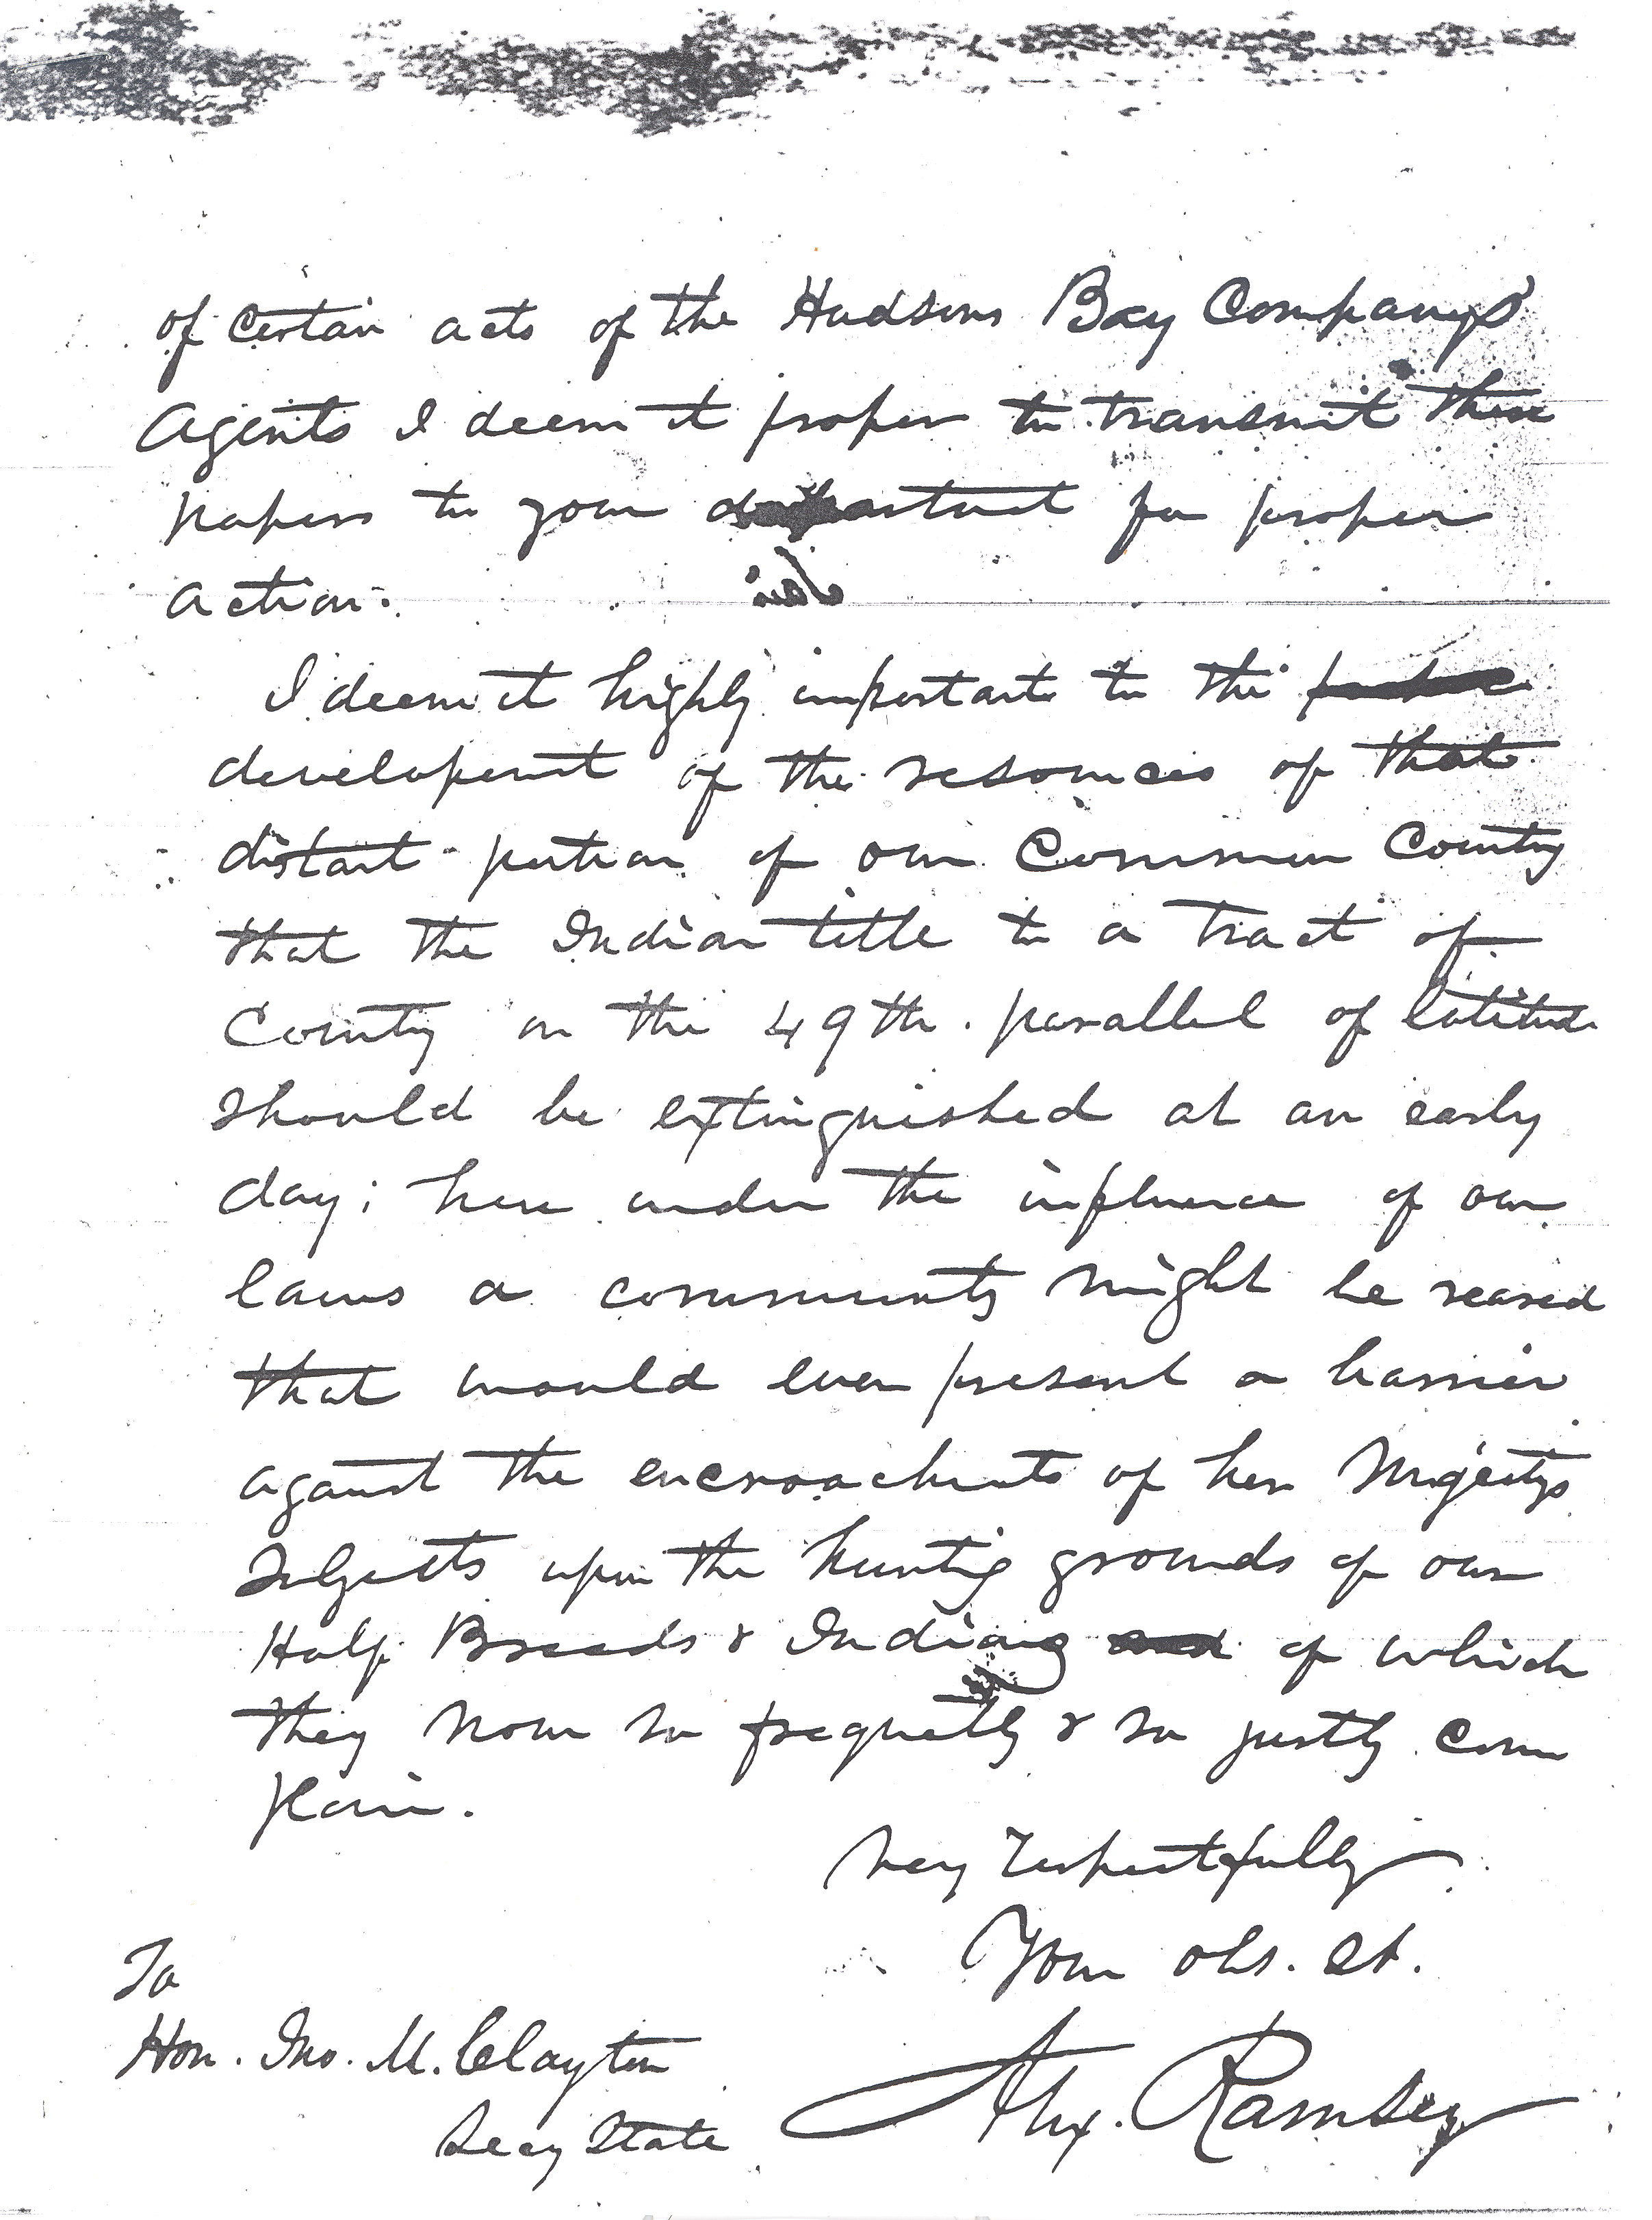 of certain acts of the Hudsons Bay Company's
Agents I deem it proper to transmit these
papers to your department for proper
action.
I deem it highly important to the
development of the resources of that
distant portion of our Common Country
that the Indian title to a tract of
Country on the 49th. parallel of latitude
should be extinguished at an early
day; here under the influence of our
laws a community might be reared
that would ever present a barrier
against the encroachments of her Majestys
Subjects upon the hunting grounds of our
Half Breeds & Indians of which
they now so frequently & so justly com
plain.
Very Respectfully
Your obs. st.
Alex. Ramsey
To
Hon. Jno. M. Clayton
Secy State